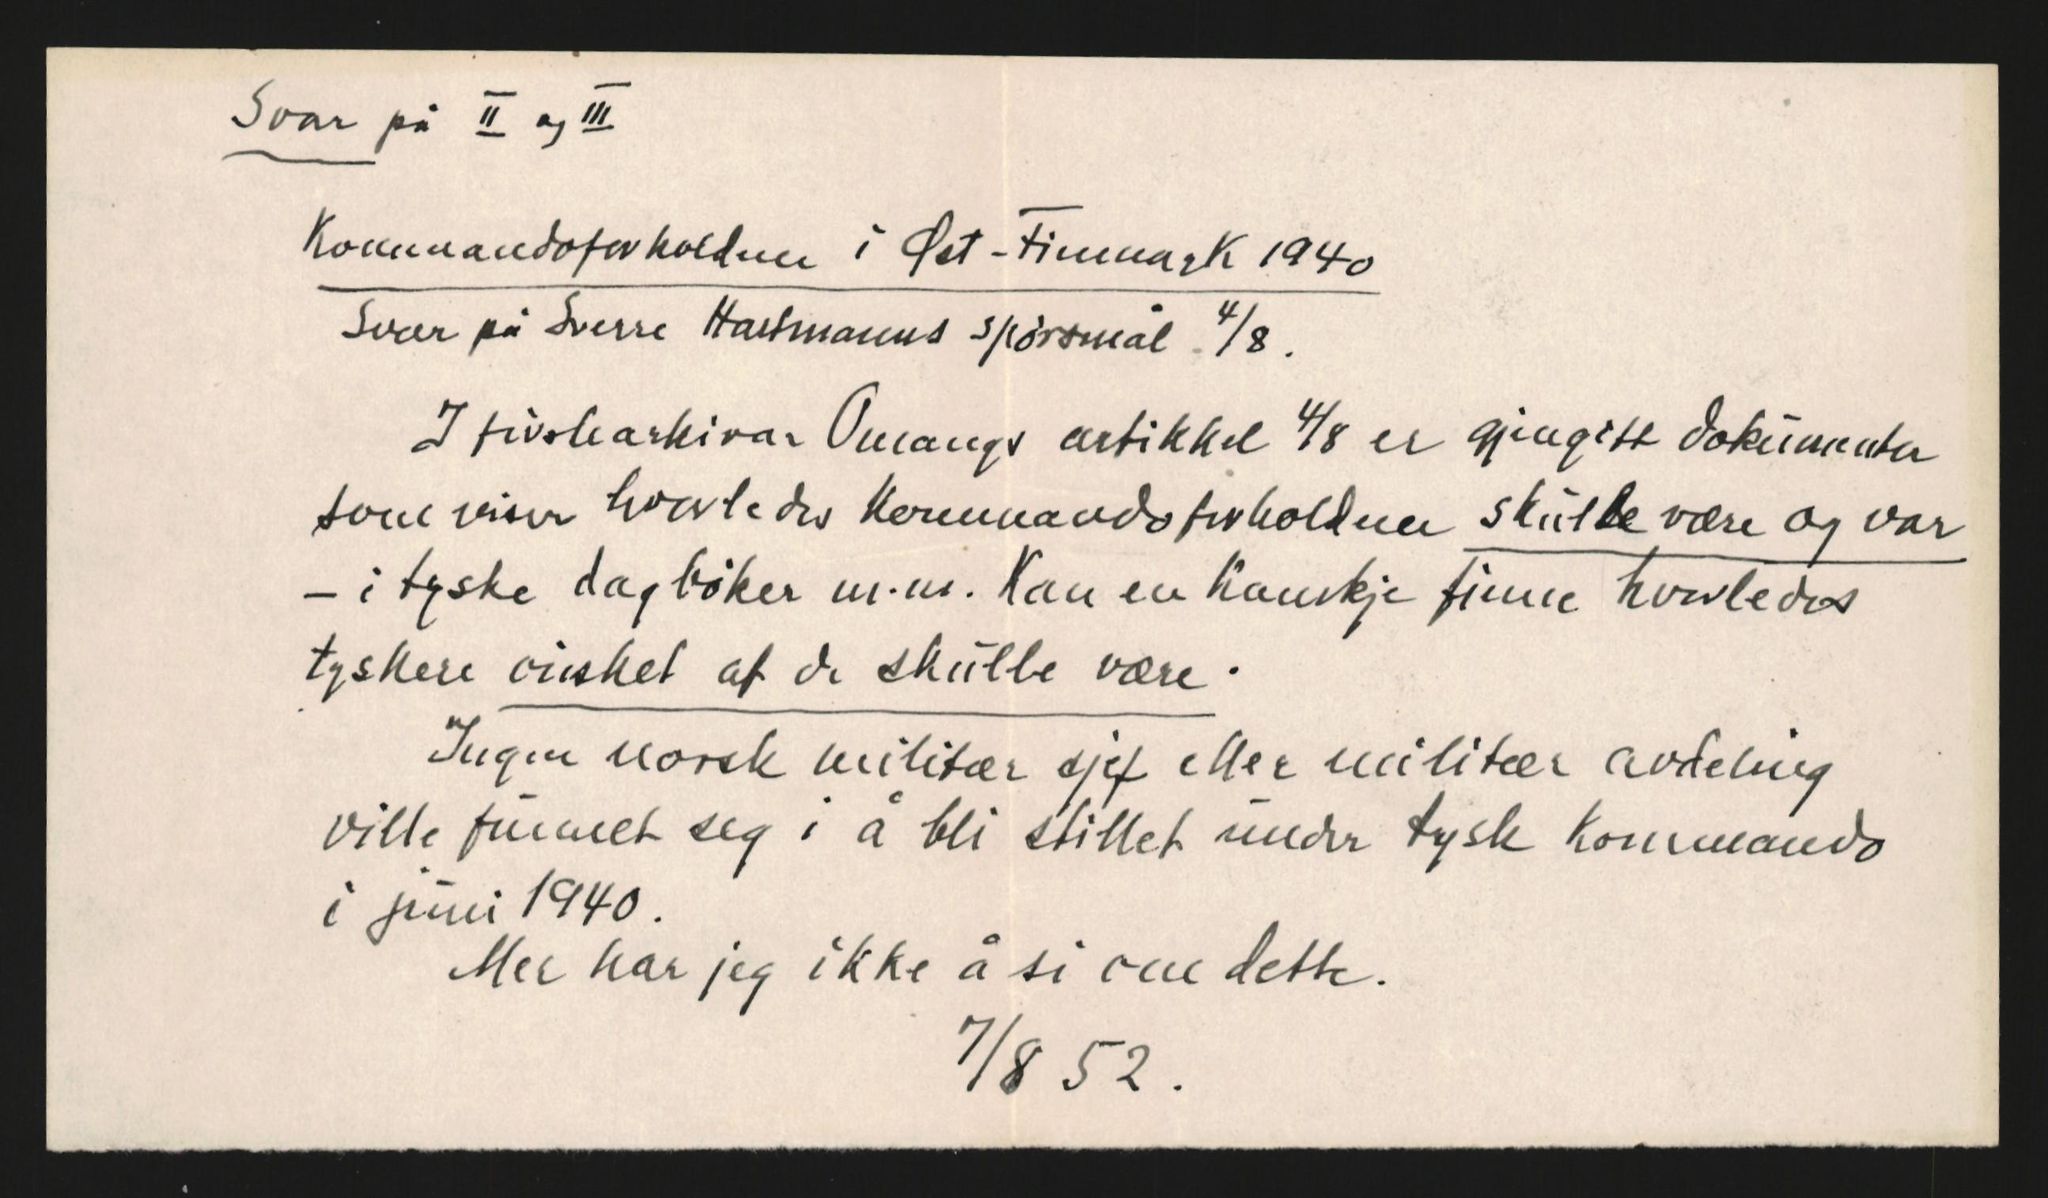 Svar på II og III
Kommandoforholdene i Øst-Finnmark 1940
Svar på Sverre Hartmanns spörsmål 4/8.
I förstearkivar Omangs artikkel 4/8 er gjengitt dokumenter
som viser hvorledes kommandoforholdene skulle være og var
- i tyske dagböker m.m. Kan en kanskje finne hvorledes
tyskere önsket at de skulle være.
Ingen norsk militær sjef eller militær avdeling
ville funnet seg i å bli stillet under tysk kommando
i juni 1940.
Mer har jeg ikke å si om dette.
7/8 52.